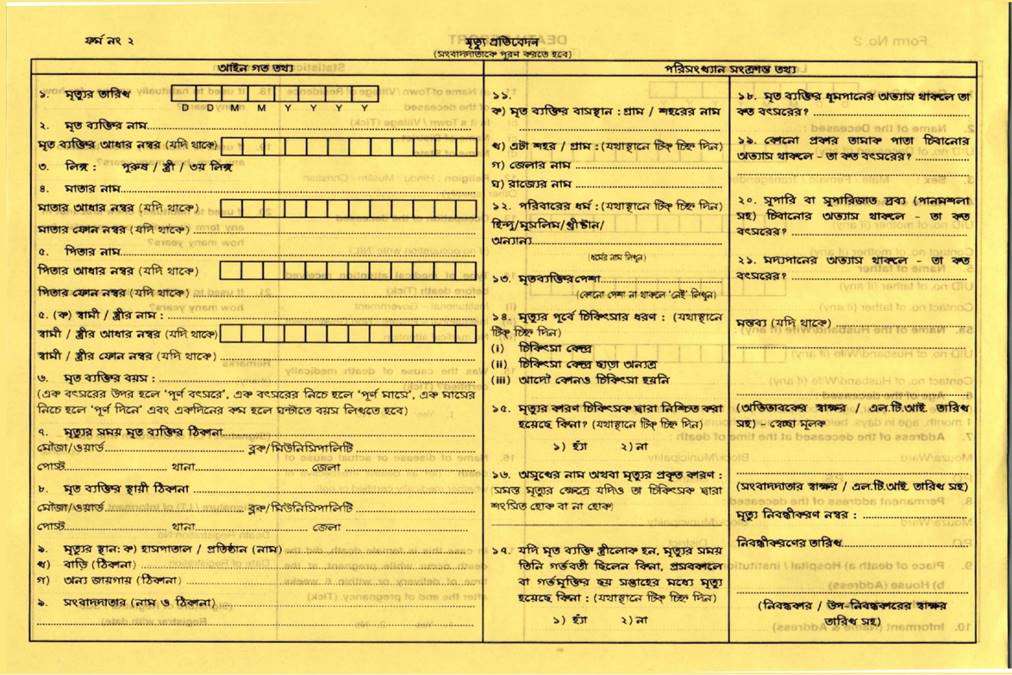 ফর্ম নং ২
মৃত্যু প্রতিবেদন
(সংবাদদাতাকে পূরণ করতে হবে)
আইন গত তথ্য
১. মৃত্যুর তারিখ
D D M M Y Y Y Y
২. মৃত ব্যক্তির নাম
মৃত ব্যক্তির আধার নম্বর (যদি থাকে)
৩. লিঙ্গ : পুরুষ / স্ত্রী / ৩য় লিঙ্গ
৪. মাতার নাম
মাতার আধার নম্বর (যদি থাকে)
মাতার ফোন নম্বর (যদি থাকে)
৫. পিতার নাম
পিতার আধার নম্বর (যদি থাকে)
পিতার ফোন নম্বর (যদি থাকে)
৫. (ক) স্বামী / স্ত্রীর নাম :
স্বামী / স্ত্রীর আধার নম্বর (যদি থাকে)
স্বামী / স্ত্রীর ফোন নম্বর (যদি থাকে)
৬. মৃত ব্যক্তির বয়স :
(এক বৎসরের উপর হলে 'পূর্ণ বৎসরে', এক বৎসরের নিচে হলে 'পূর্ণ মাসে', এক মাসের
নিচে হলে 'পূর্ণ দিনে' এবং একদিনের কম হলে ঘন্টাতে বয়স লিখতে হবে)
৭. মৃত্যুর সময় মৃত ব্যক্তির ঠিকানা
মৌজা/ওয়ার্ড ব্লক/মিউনিসিপালিটি
পোস্ট থানা জেলা
৮. মৃত ব্যক্তির স্থায়ী ঠিকানা
মৌজা/ওয়ার্ড ব্লক/মিউনিসিপালিটি
পোস্ট থানা জেলা
৯. মৃত্যুর স্থান: ক) হাসপাতাল / প্রতিষ্ঠান (নাম)
খ) বাড়ি (ঠিকানা)
গ) অন্য জায়গায় (ঠিকানা)
৯. সংবাদদাতার (নাম ও ঠিকানা)
পরিসংখ্যান সংক্রান্ত তথ্য
১১.
ক) মৃত ব্যক্তির বাসস্থান : গ্রাম / শহরের নাম
খ) এটা শহর / গ্রাম : (যথাস্থানে টিক্ চিহ্ন দিন)
গ) জেলার নাম
ঘ) রাজ্যের নাম
১২. পরিবারের ধর্ম : (যথাস্থানে টিক্ চিহ্ন দিন)
হিন্দু/মুসলিম/খ্রীষ্টান/
অন্যান্য
(ধর্মের নাম লিখুন)
১৩. মৃতব্যক্তির পেশা
(কোনো পেশা না থাকলে 'নেই' লিখুন)
১৪. মৃত্যুর পূর্বে চিকিৎসার ধরণ : (যথাস্থানে
টিক্ চিহ্ন দিন)
(i) চিকিৎসা কেন্দ্র
(ii) চিকিৎসা কেন্দ্র ছাড়া অন্যত্র
(iii) আদৌ কোনও চিকিৎসা হয়নি
১৫. মৃত্যুর কারণ চিকিৎসক দ্বারা নিশ্চিত করা
হয়েছে কিনা? (যথাস্থানে টিক্ চিহ্ন দিন)
১) হ্যাঁ ২) না
১৬. অসুখের নাম অথবা মৃত্যুর প্রকৃত কারণ :
সমস্ত মৃত্যুর ক্ষেত্রে যদিও তা চিকিৎসক দ্বারা
শংসিত হোক বা না হোক)
১৭. যদি মৃত ব্যক্তি স্ত্রীলোক হন, মৃত্যুর সময়
তিনি গর্ভবতী ছিলেন কিনা, প্রসবকালে
বা গর্ভমুক্তির ছয় সপ্তাহের মধ্যে মৃত্যু
হয়েছে কিনা : (যথাস্থানে টিক্ চিহ্ন দিন)
১) হ্যাঁ ২) না
১৮. মৃত ব্যক্তির ধূমপানের অভ্যাস থাকলে তা
কত বৎসরের?
১৯. কোনো প্রকার তামাক পাতা চিবানোর
অভ্যাস থাকলে - তা কত বৎসরের?
২০. সুপারি বা সুপারিজাত দ্রব্য (পানমশলা
সহ) চিবানোর অভ্যাস থাকলে - তা কত
বৎসরের?
২১. মদ্যপানের অভ্যাস থাকলে - তা কত
বৎসরের?
মন্তব্য (যদি থাকে)
(অভিভাবকের স্বাক্ষর / এল.টি.আই. তারিখ
সহ) - স্বেচ্ছা মূলক
(সংবাদদাতার স্বাক্ষর / এল.টি.আই. তারিখ সহ)
মৃত্যু নিবন্ধীকরণ নম্বর :
নিবন্ধীকরণের তারিখ
(নিবন্ধকার / উপ-নিবন্ধকারের স্বাক্ষর
তারিখ সহ)